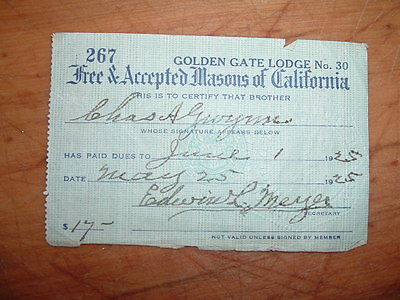 267
GOLDEN GATE LODGE No. 30
Free & Accepted Masons of California
THIS IS TO CERTIFY THAT BROTHER
Chas A Gwynn
WHOSE SIGNATURE APPEARS BELOW
HAS PAID DUES TO June 1 1925
DATE May 25 1925
Edwin L. Meyer
SECRETARY
$17-
NOT VALID UNLESS SIGNED BY MEMBER